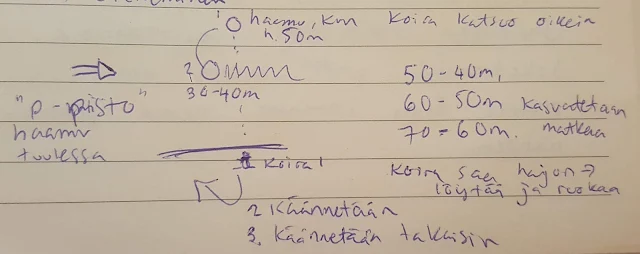 haamu, KM
n. 50m
Koira katsoo oikein
?
30-40m
"p-päästö"
haamu
tuulessa
50-40m,
60-50m kasvatetaan
70-60m. matkaa
Koira!
Koira saa hajon →
löytää ja ruokaa
2 Käännetään
3. Käännetään takaisin